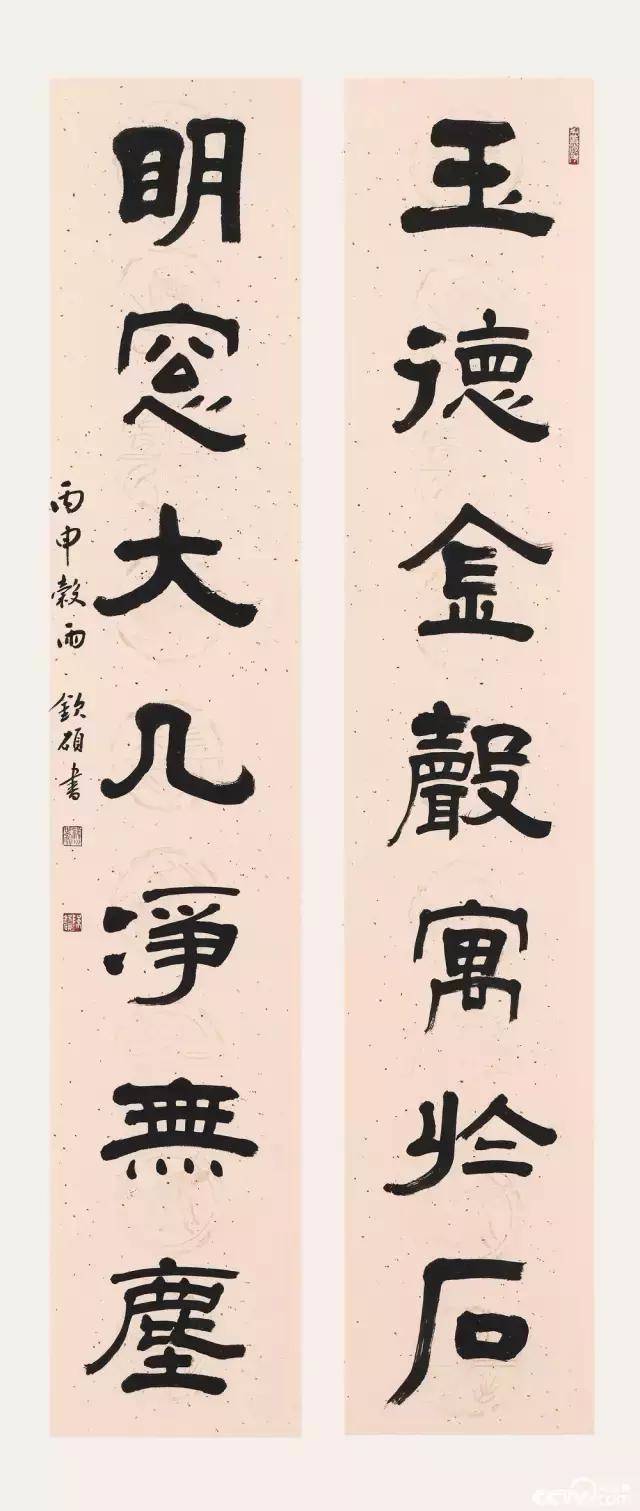 玉德金聲寓於石
明窓大几淨無塵
丙申穀雨 欽碩書